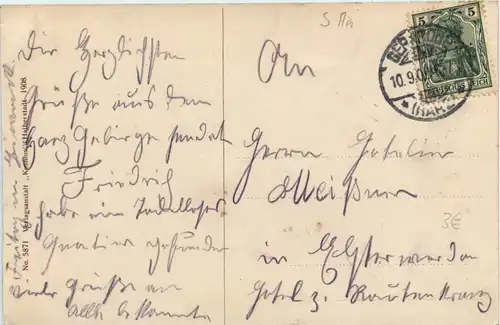 Die Herzlichsten
Grüße aus dem
Harz Gebirge sendet
Friedrich
habe ein Tadelloses
Quartier gefunden
viele Grüße an
alle Bekannte
An
Herrn Hotelier
Meißner
in Elsterwerda
Hotel z. Rautenkranz
No. 5871 Verlagsanstalt 1908
5 5
10.9.0
(HARZ)
3€